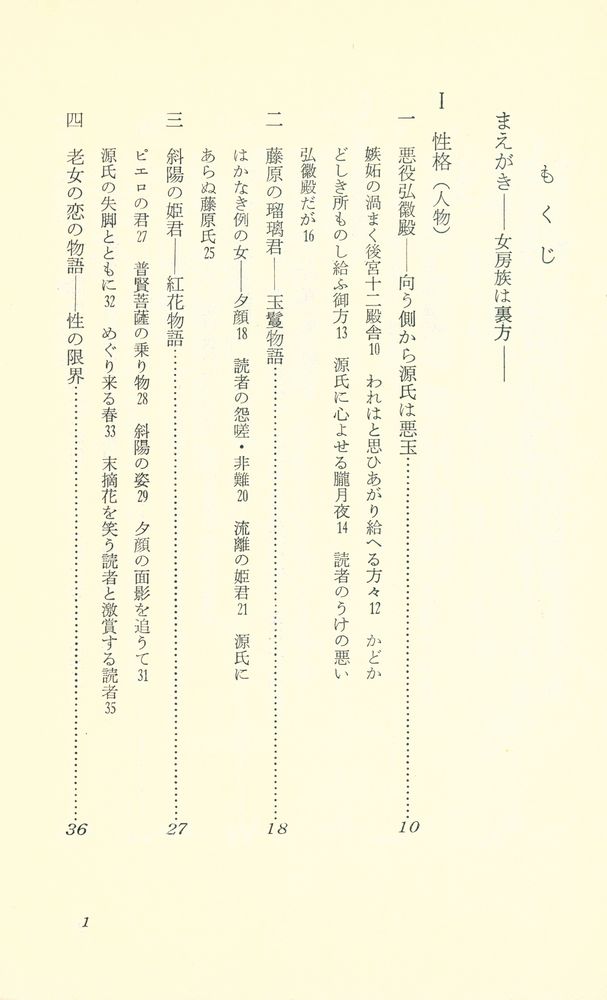 もくじ
まえがき――女房族は裏方――
Ⅰ　性格（人物）
一　悪役弘徽殿――向う側から源氏は悪玉……………………10
嫉妬の渦まく後宮十二殿舎10　われはと思ひあがり給へる方々12　かどか
どしき所ものし給ふ御方13　源氏に心よせる朧月夜14　読者のうけの悪い
弘徽殿だが16
二　藤原の瑠璃君――玉鬘物語……………………18
はかなき例の女――夕顔18　読者の怨嗟・非難20　流離の姫君21　源氏に
あらぬ藤原氏25
三　斜陽の姫君――紅花物語……………………27
ピエロの君27　普賢菩薩の乗り物28　斜陽の姿29　夕顔の面影を追うて31
源氏の失脚とともに32　めぐり来る春33　末摘花を笑う読者と激賞する読者35
四　老女の恋の物語――性の限界……………………36
1